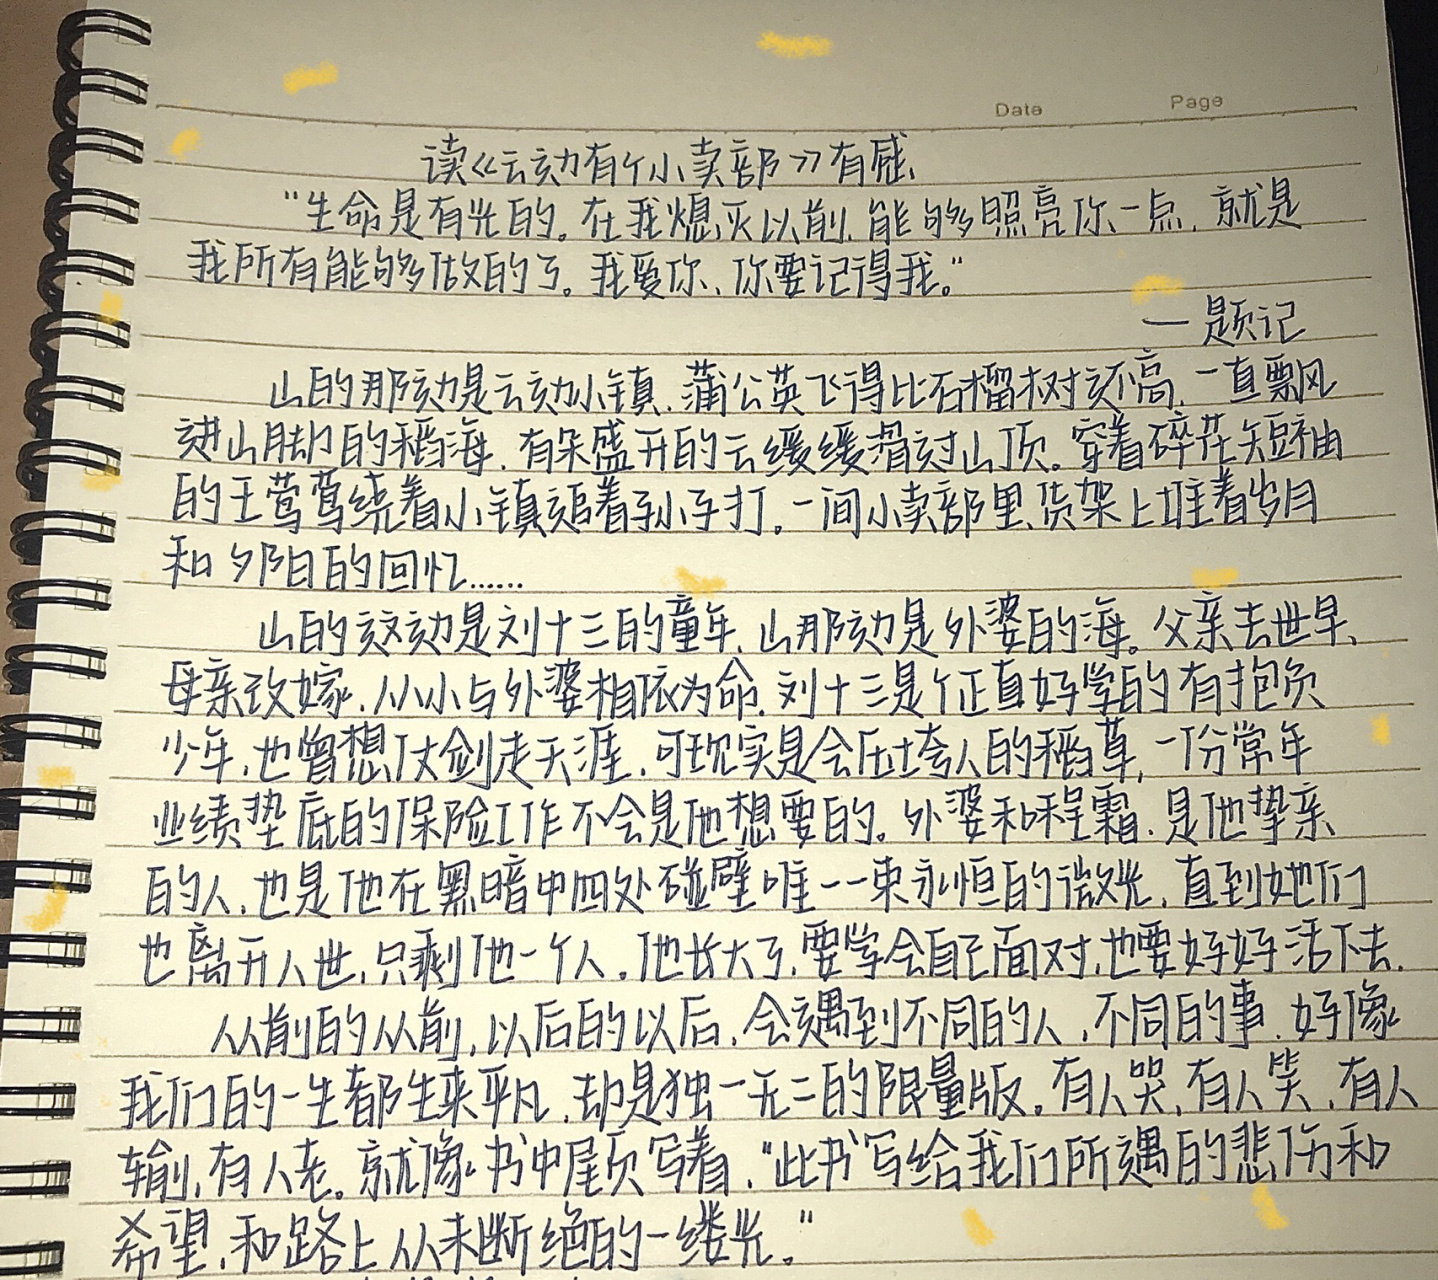 Date Page
读《云边有个小卖部》有感
"生命是有光的。在我熄灭以前,能够照亮你一点,就是
我所有能够做的了。我爱你,你要记得我。"
—题记
山的那边是云边小镇,蒲公英飞得比石榴树还高,一直飘
进山脚的稻海,有朵盛开的云缓缓滑过山顶。穿着碎花短袖
的王莺莺绕着小镇追着孙子打。一间小卖部里,货架上堆着岁月
和夕阳的回忆......
山的这边是刘十三的童年,山那边是外婆的海。父亲去世早,
母亲改嫁,从小与外婆相依为命,刘十三是个正直好学的有抱负
少年,也曾想仗剑走天涯,可现实是会压垮人的稻草,一份常年
业绩垫底的保险工作不会是他想要的。外婆和程霜,是他挚亲
的人,也是他在黑暗中四处碰壁唯一一束永恒的微光,直到她们
也离开人世,只剩他一个人。他长大了,要学会自己面对,也要好好活下去。
从前的从前,以后的以后,会遇到不同的人,不同的事,好像
我们的一生都生来平凡,却是独一无二的限量版。有人哭,有人笑,有人
输,有人老。就像书中尾页写着,"此书写给我们所遇的悲伤和
希望,和路上从未断绝的一缕光。"